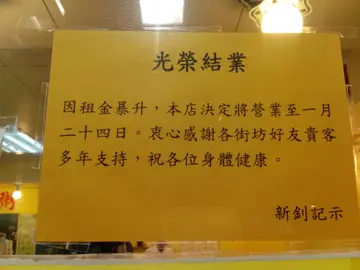 光榮結業
因租金暴升，本店決定將營業至一月
二十四日。衷心感謝各街坊好友貴客
多年支持，祝各位身體健康。
新釗記示
粥